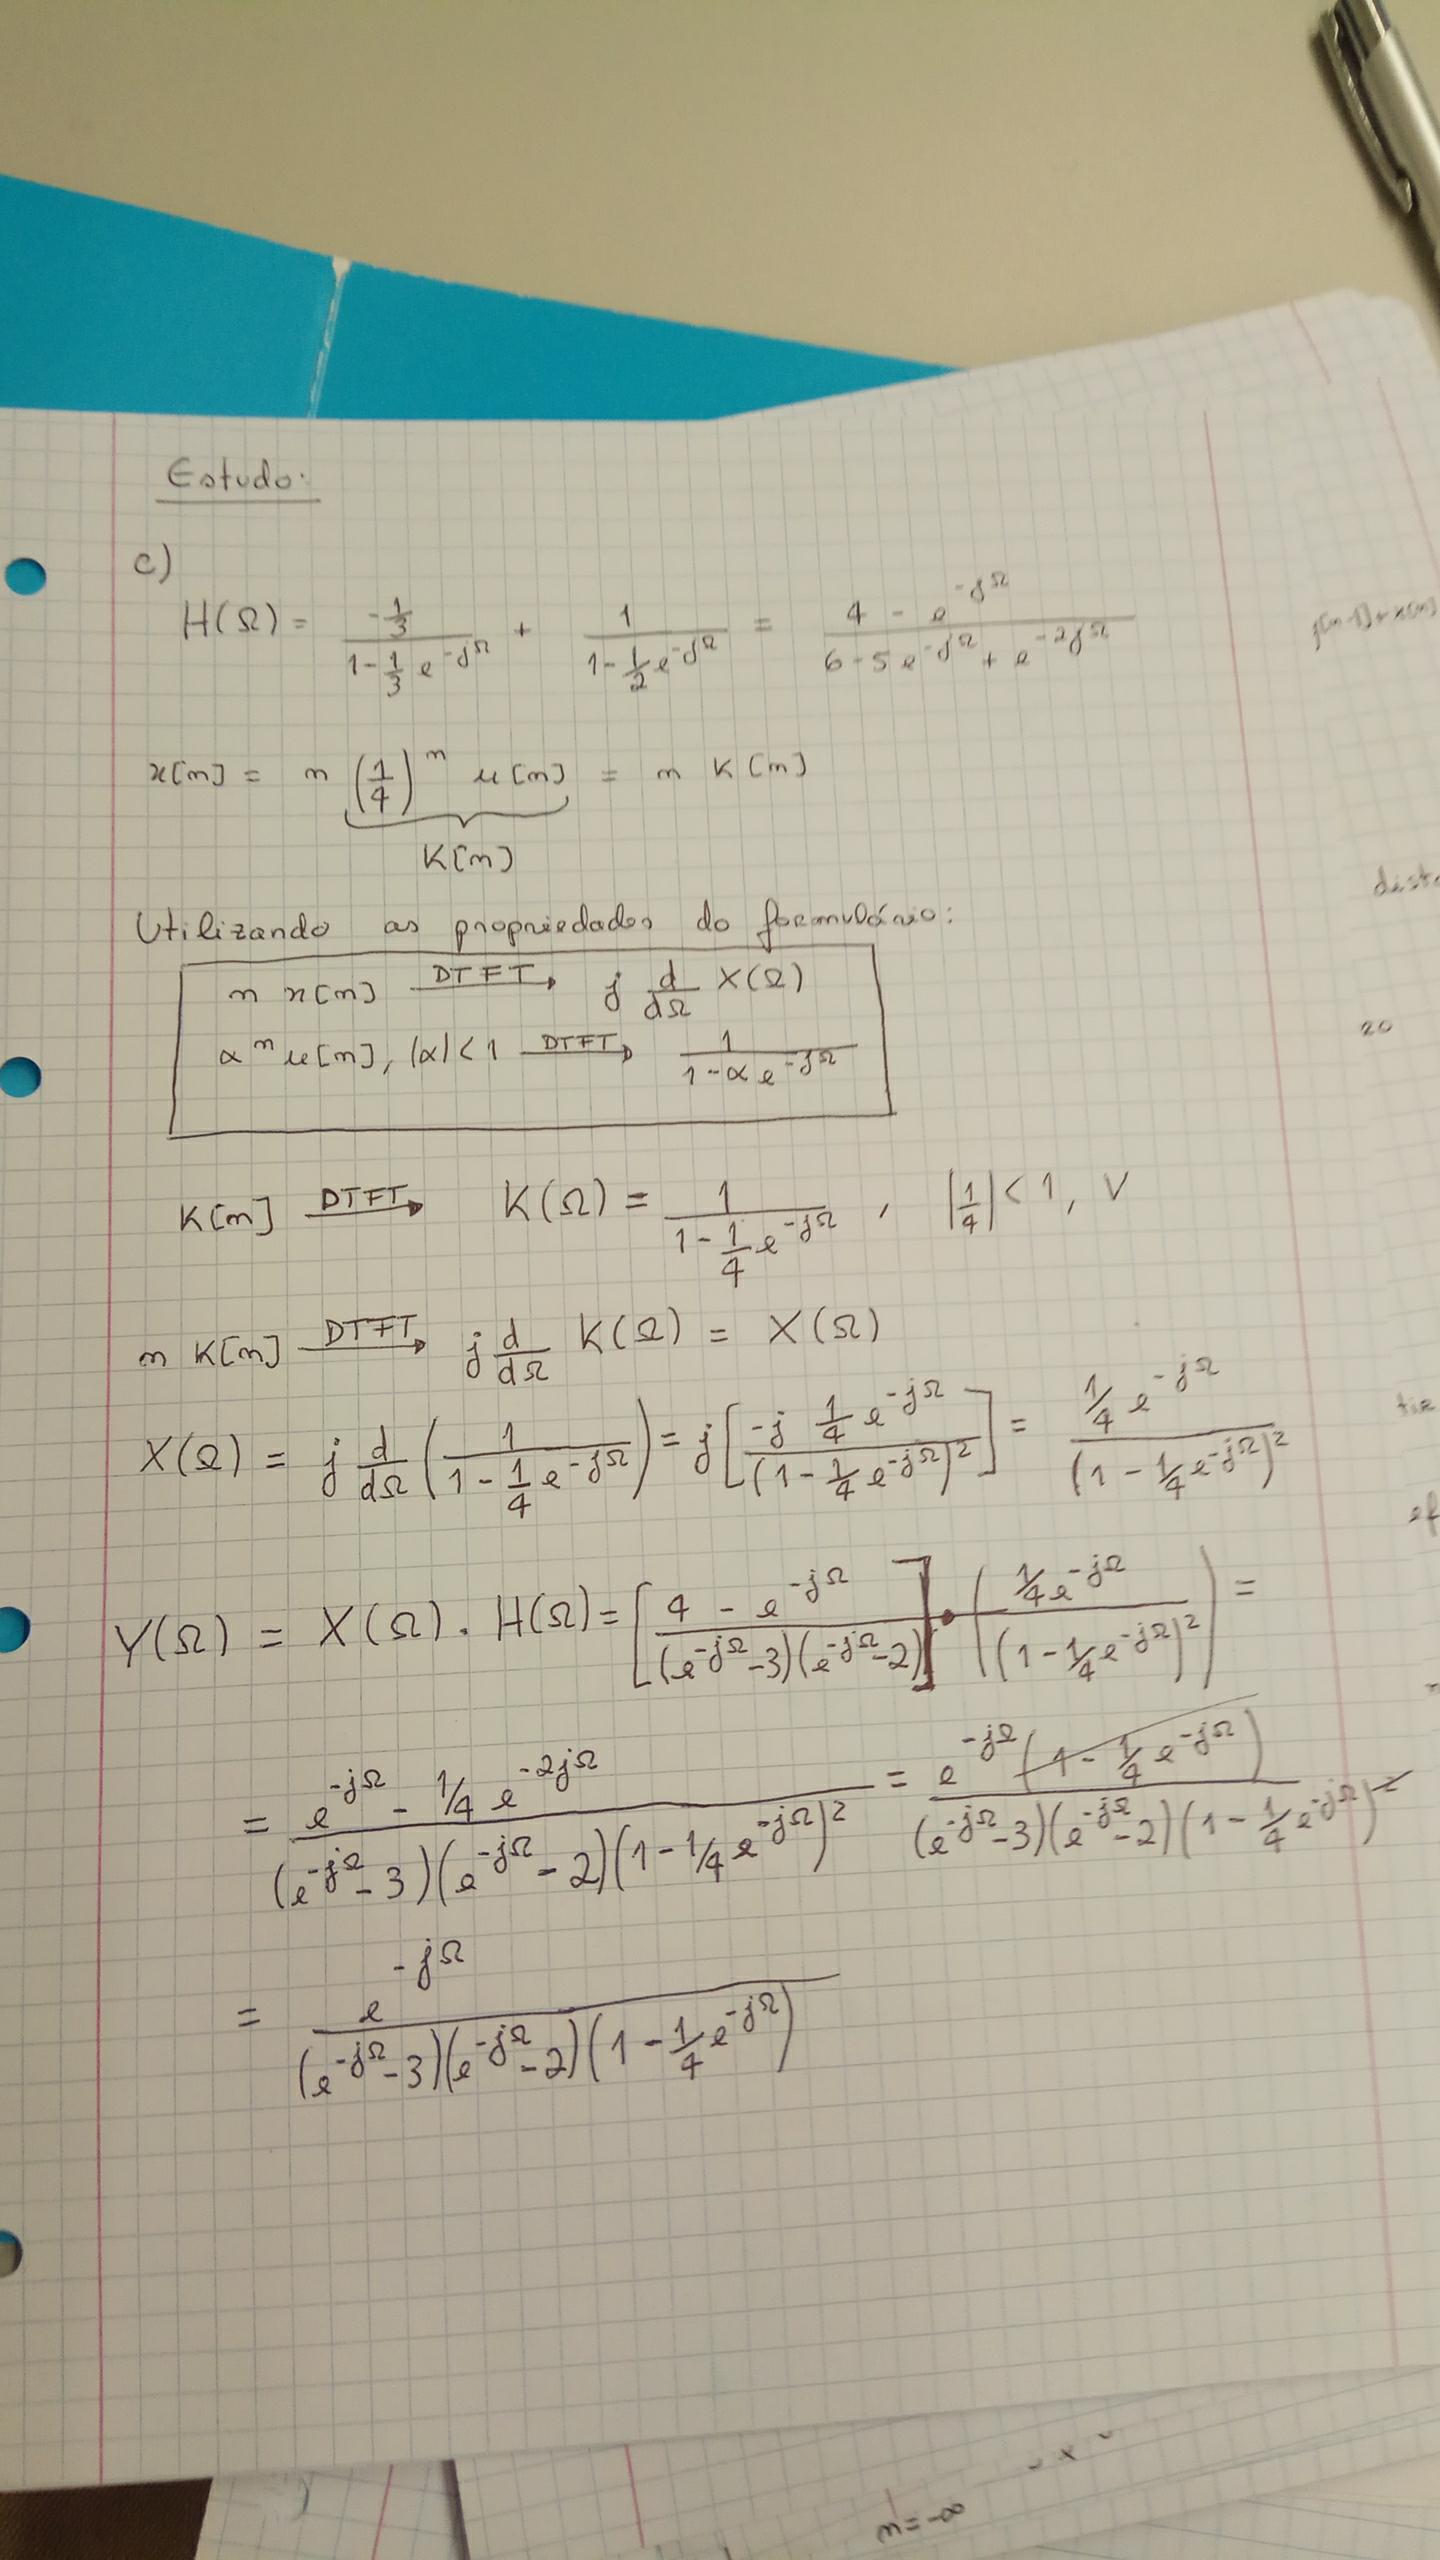 Estudo:
c)
H(Ω) = (-1/3)/(1 - 1/3 e^{-jΩ}) + 1/(1 - 1/2 e^{-jΩ}) = (4 - e^{-jΩ})/(6 - 5e^{-jΩ} + e^{-2jΩ})
x[n] = n (1/4)^n u[n] = n K[n]
K[n]
Utilizando as propriedades do formulário:
n x[n] DTFT→ j d/dΩ X(Ω)
α^n u[n], |α| < 1 DTFT→ 1/(1 - α e^{-jΩ})
K[n] DTFT→ K(Ω) = 1/(1 - 1/4 e^{-jΩ}) , |1/4| < 1, V
n K[n] DTFT→ j d/dΩ K(Ω) = X(Ω)
X(Ω) = j d/dΩ (1/(1 - 1/4 e^{-jΩ})) = j[(-j 1/4 e^{-jΩ})/(1 - 1/4 e^{-jΩ})^2] = (1/4 e^{-jΩ})/(1 - 1/4 e^{-jΩ})^2
Y(Ω) = X(Ω) . H(Ω) = [(4 - e^{-jΩ})/((e^{-jΩ} - 3)(e^{-jΩ} - 2))] · ((1/4 e^{-jΩ})/(1 - 1/4 e^{-jΩ})^2) =
= (e^{-jΩ} - 1/4 e^{-2jΩ})/((e^{-jΩ} - 3)(e^{-jΩ} - 2)(1 - 1/4 e^{-jΩ})^2) = (e^{-jΩ}(1 - 1/4 e^{-jΩ}))/((e^{-jΩ} - 3)(e^{-jΩ} - 2)(1 - 1/4 e^{-jΩ})^2)
= e^{-jΩ}/((e^{-jΩ} - 3)(e^{-jΩ} - 2)(1 - 1/4 e^{-jΩ}))
20
n = -∞